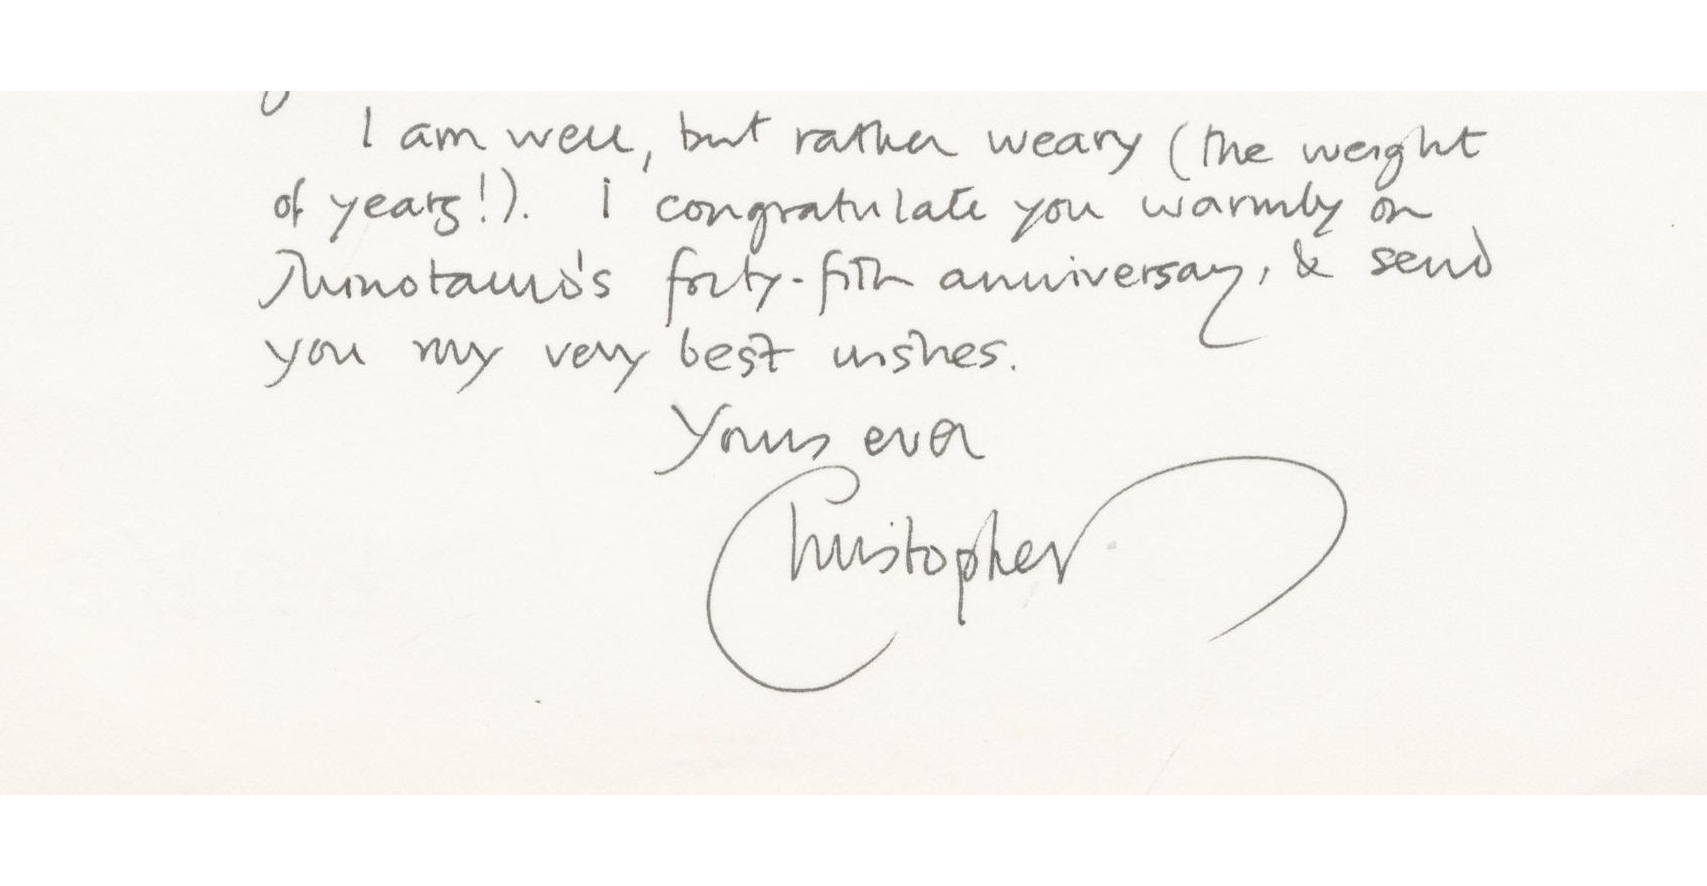 I am well, but rather weary (the weight
of years!). I congratulate you warmly on
Minotauro's forty-fifth anniversary, & send
you my very best wishes.
Yours ever
Christopher